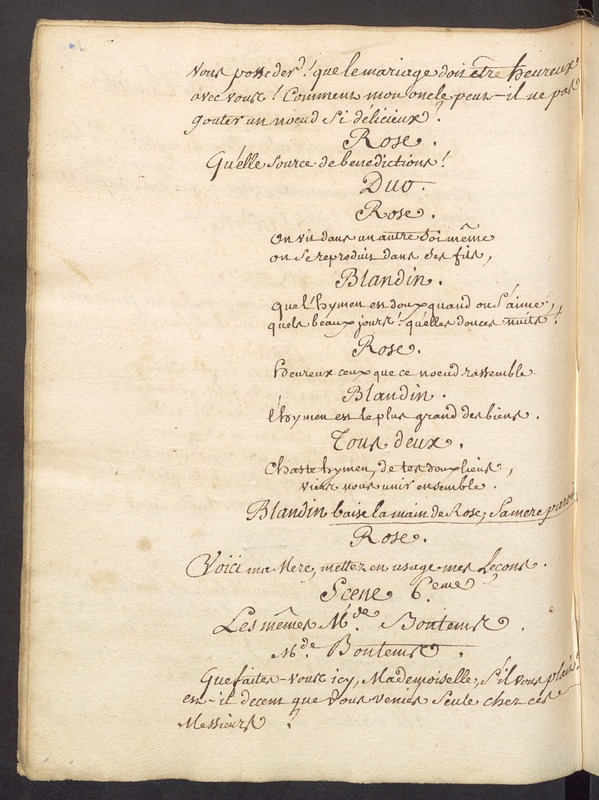 vous posseder! que le mariage doit être heureux
avec vous! Comment mon oncle peut-il ne pas
gouter un noeud si délicieux?
Rose.
Qu'elle source de benedictions!
Duo.
Rose.
On vit dans un autre soi même
on se reproduit dans des fils,
Blandin.
que l'hymen est doux quand on s'aime!
quels beaux jours! qu'elles douces nuits!
Rose.
heureux ceux que ce noeud rassemble
Blandin.
l'hymen est le plus grand des biens.
Tous deux.
Chaste hymen, de tes doux liens,
viens nous unir ensemble.
Blandin baise la main de Rose, sa mere paroit
Rose.
Voici ma Mere, mettez en usage mes Leçons.
Scene 6.eme
Les mêmes M.de Bontems.
M.de Bontems.
Que faites-vous icy, Mademoiselle, s'il vous plait?
est-il decent que vous venies seule chez ces
Messieurs?